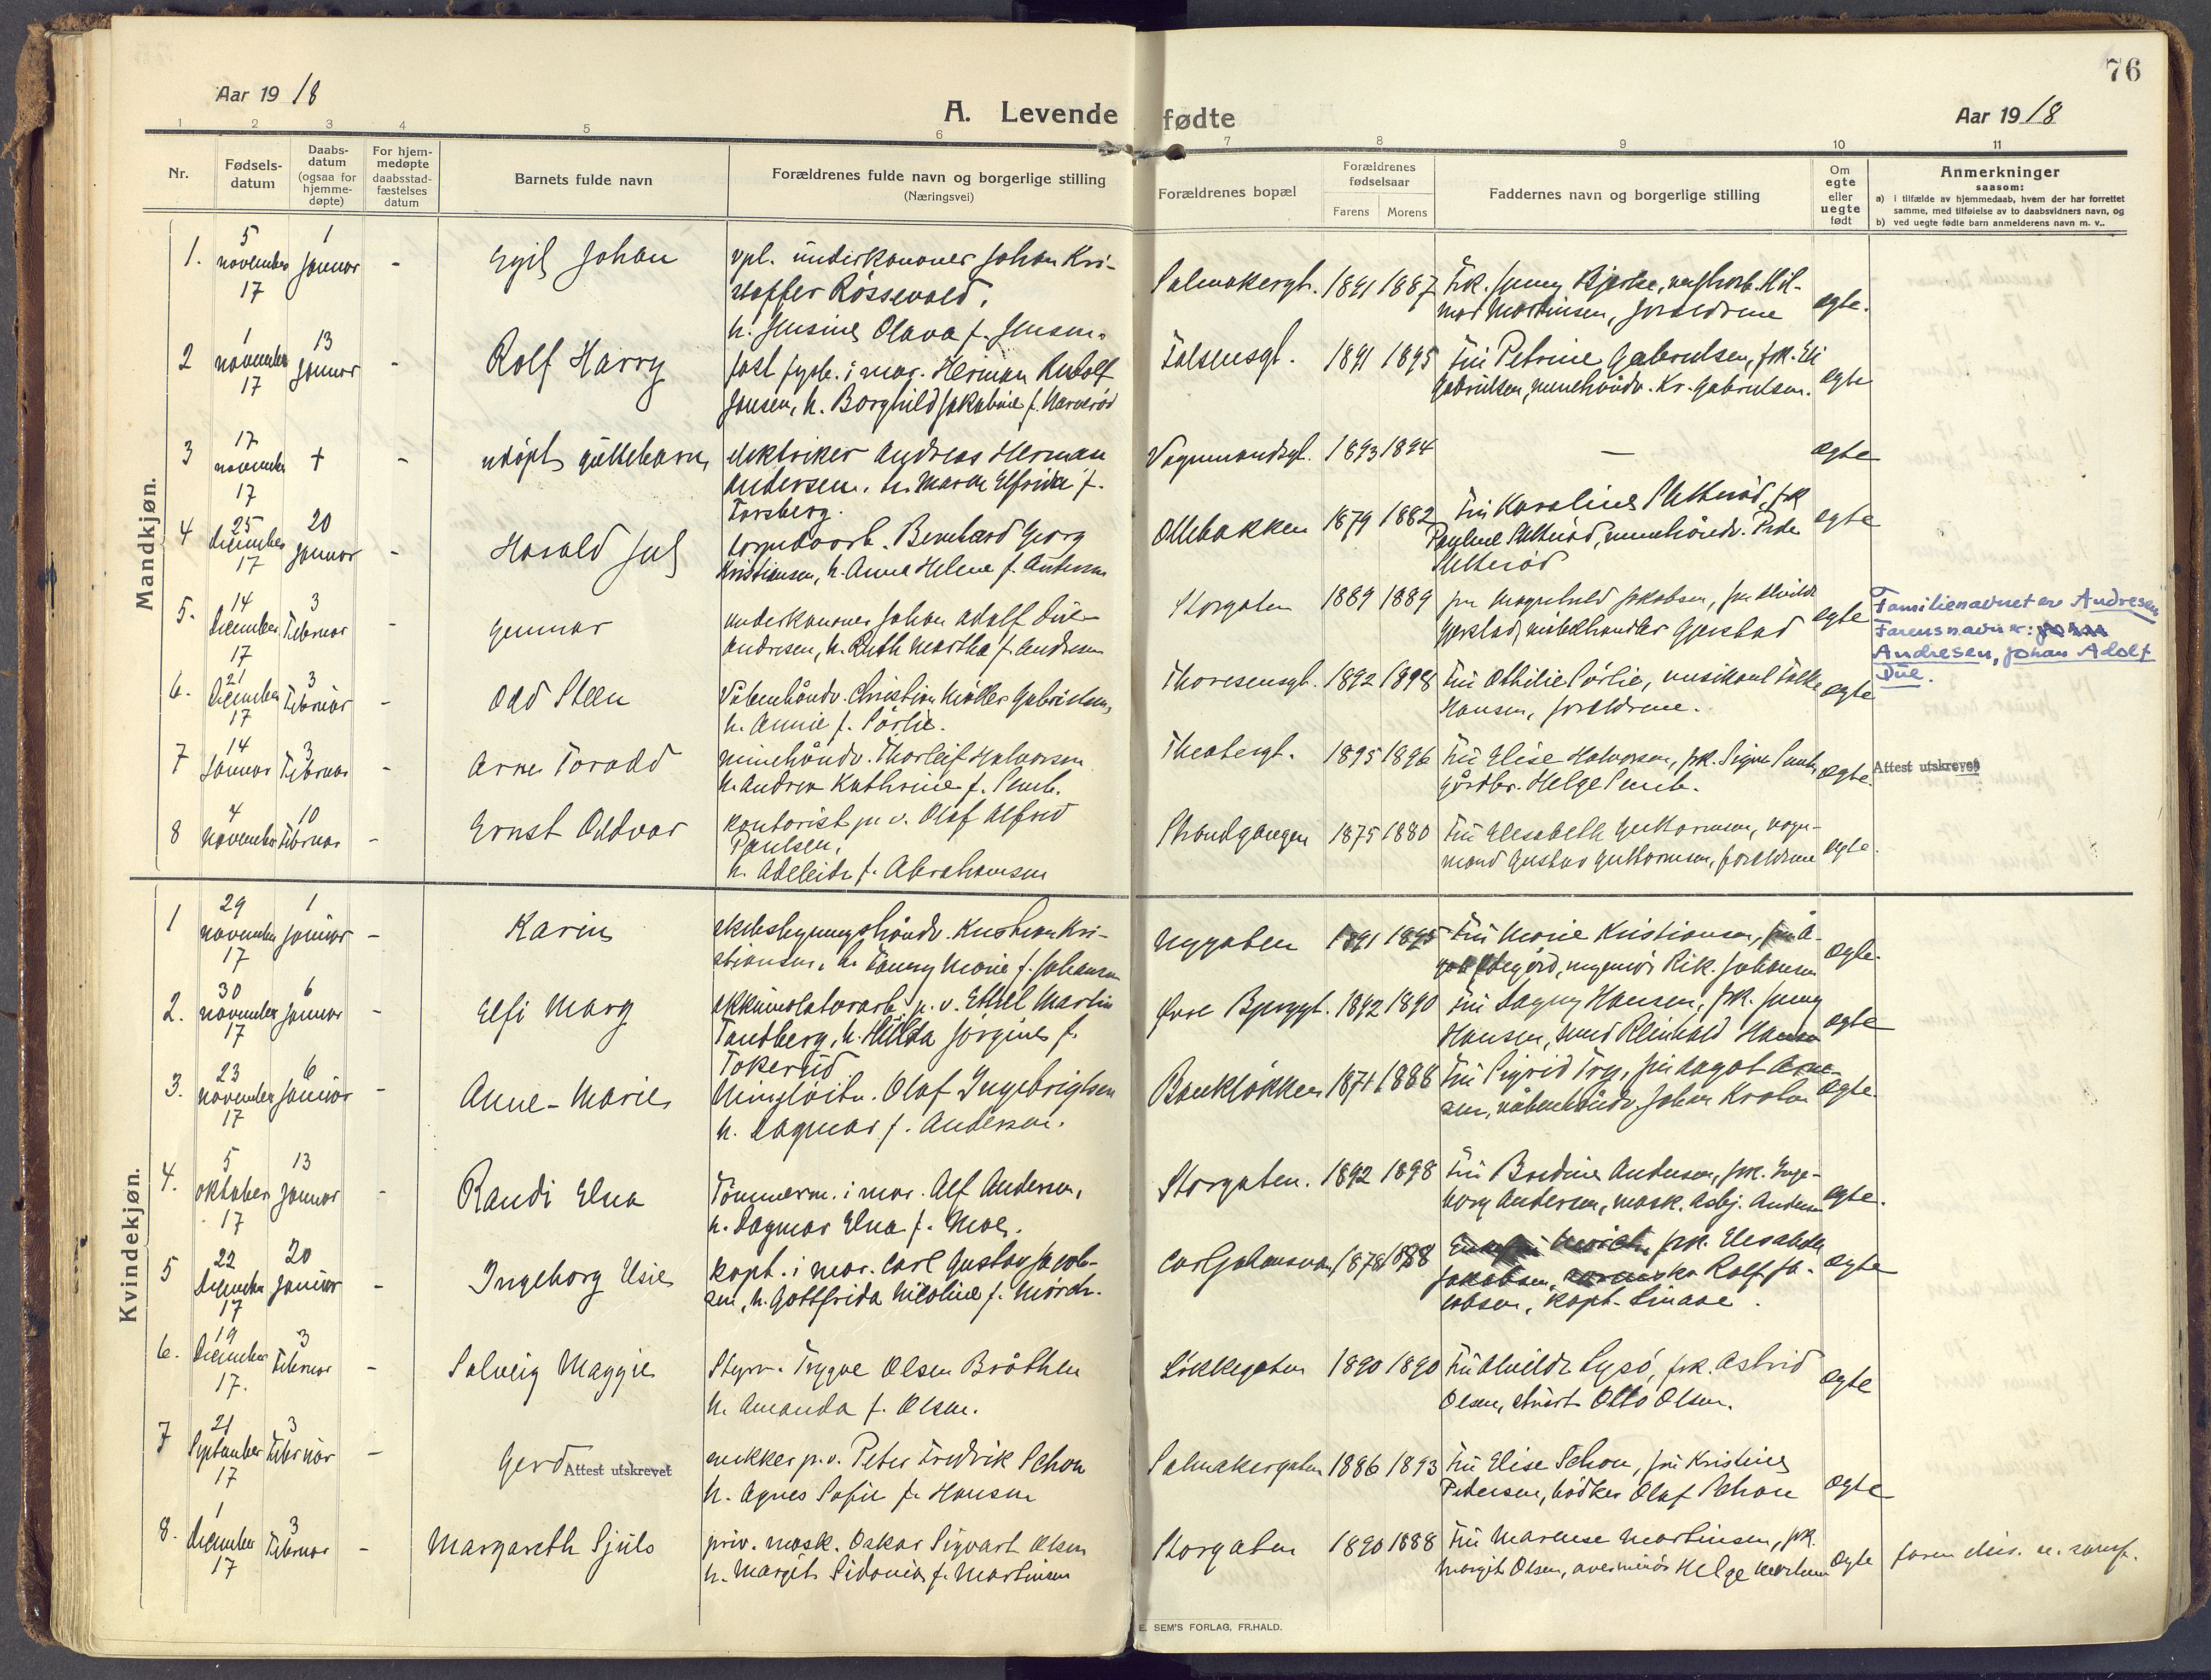 76
Aar 1918
A. Levende fødte
Aar 1918
1 2 3 4 5 6 7 8 9 10 11
Nr.
Fødsels-
datum
Daabs-
datum
(ogsaa for
hjemme-
døpte)
For hjem-
medøpte
daabsstad-
fæstelses
datum
Barnets fulde navn
Forældrenes fulde navn og borgerlige stilling
(Næringsvei)
Forældrenes bopæl
Forældrenes
fødselsaar
Farens Morens
Faddernes navn og borgerlige stilling
Om
egte
eller
uegte
født
Anmerkninger
saasom:
a) i tilfælde av hjemmedaab, hvem der har forrettet
samme, med tilføielse av to daabsvidners navn, og
b) ved uegte fødte barn anmelderens navn m. v..
Mandkjøn.
1. 5 november 17 1 januar - Egil Johan
vpl. underkanoner Johan Kri-
stoffer Røssevold,
h. Jensine Olava f. Jensen.
1891 1887
forældrene
egte.
2 1 november 17 13 januar - Rolf Harry
fast fyrb. i mar. Herman Rudolf
Jansen, h. Borghild Jakobine f.
Falsensgt. 1891 1895 Fru Petrine Gabrielsen, frk. Eli
Gabrielsen, minehåndv. Kr. Gabrielsen.
egte
3 17 november 17 + - udøpt guttebarn
elektriker Andreas Herman
Andersen, h. Maren Elfrida f.
Torsberg.
Vognmandsgt. 1893 1894 - egte
4 25 December 17 20 januar - Harald Jul
Bernhard Georg
Kristiansen, h. Anna Helene f. Andersen
Ollebakken 1879 1882 Fru Karoline Sletterød, frk
Pauline Sletterød, minehåndv. Peder
Sletterød
egte
5. 14 December 17 3 Februar - Gunnar
underkanoner Johan Adolf Due
Andresen, h. Ruth Martha f. Andresen
Storgaten 1889 1889 fru Magnhild Jakobsen, fru Alvilde
Gjerstad, møbelhandler Gjerstad
egte
Familienavnet er Andresen
Farens navn er:
Andresen, Johan Adolf
Due.
6. 21 December 17 3 Februar - Odd Steen
Våbenhåndv. Christian Møller Gabrielsen,
h. Annie f. Sørlie.
Thoresensgt. 1892 1898 Fru Othilie Sørlie, musikant Falke
Hansen, forældrene.
egte
7 14 Januar 3 Februar - Arne Torodd
minehåndv. Thorleif Halvorsen
h. Andrea Kathrine f. Semb.
1895 1896 Fru Elise Halvorsen, frk. Signe Semb,
gårdbr. Helge Semb.
egte.
Attest utskrevet
8 4 november 10 Februar - Ernst Oddvar
kontorist p. v. Olaf Alfred
Paulsen,
h. Adeleide f. Abrahamsen
Strandgangen 1875 1880 Fru Elisabeth Guttormsen, vogn-
mand Gustav Guttormsen, forældrene
egte.
Kvindekjøn.
1 29 november 17 1 januar - Karin
skibsbygningshåndv. Kristian Kri-
stiansen, h. Fanny Marie f. Johansen
Nygaten 1891 1895 Fru Marie Kristiansen,
ingeniør Rik. Johansen
egte.
2. 30 november 17 6 januar - Elfi Mary
akkumulatorarb. p. v. Ethel Martin
Tandberg, h. Hilda Jørgine f.
Tokerud
1892 1890 Fru Dagny Hansen, frk. Jenny
Hansen, smed Reinhold Hansen
egte
3. 23 november 17 6 januar - Anne-Marie
Olaf Ingebrigtsen
h. Dagmar f. Andersen.
Bankløkken 1874 1888 Fru Sigrid Try, fru Aagot Arne-
sen, våbenhåndv. Johan
egte.
4. 5 oktober 17 13 januar - Randi Elna
Tømmerm. i mar. Alf Andersen,
h. Dagmar Elna f. Moe.
Storgaten. 1892 1898 Fru Bredine Andersen, frk. Inge-
borg Andersen, mask. Asbj. Andersen
egte.
5 22 December 17 20 januar Ingeborg Elsie
kapt. i mar. Carl Gustav Jacob-
sen, h. Gottfrida Nicoline f. Mørch.
Carljohansvn 1878 1888 frk. Elisabeth
Jakobsen, Rolf Ja-
cobsen, kapt. Linaae.
egte
6. 19 December 17. 3 Februar - Solveig Maggie
Styrm. Trygve Olsen Bråthen
h. Amanda f. Olsen.
Løkkegaten 1890 1890 Fru Alvilde Lysø, frk. Astrid
Olsen, stuert Otto Olsen.
egte
7 21 September 17 3 Februar - Gerd
Attest utskrevet
snekker p. v. Peter Fredrik Schou
h. Agnes Sofie f. Hansen
Salmakergaten 1886 1893 Fru Elise Schou, fru Kristine
Pedersen, bødker Olaf Schou
egte
8. 1 December 17 3 Februar - Margareth Sjuls
priv. mask. Oskar Sigvart Olsen
h. Margit Sidonia f. Martinsen
Storgaten 1890 1888 Fru Marense Martinsen, frk.
Margit Olsen, Helge
egte
faren
E. SEM'S FORLAG, FR.HALD.